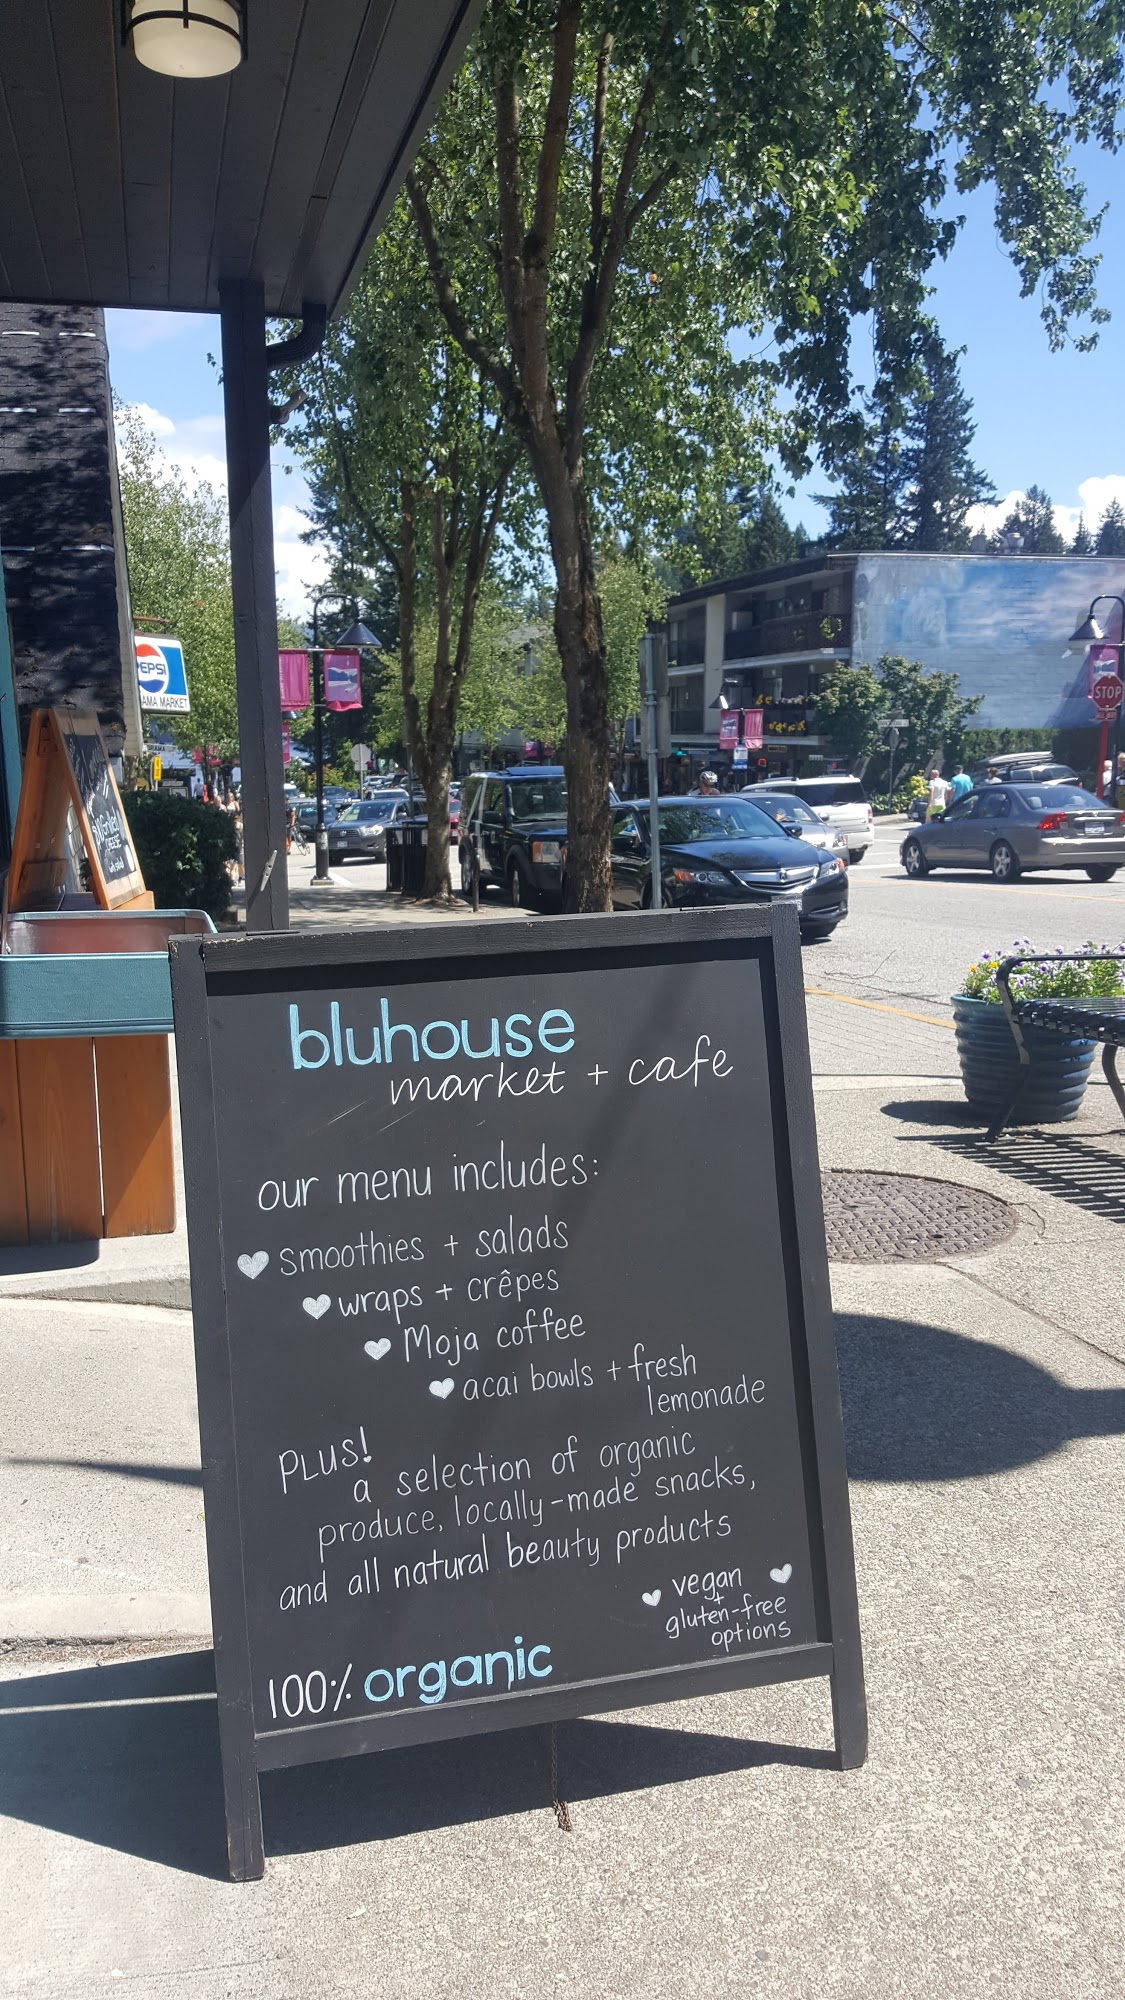 bluhouse
market + cafe
our menu includes:
smoothies + salads
wraps + crêpes
Moja coffee
acai bowls + fresh
lemonade
PLUS!
a selection of organic
produce, locally-made snacks,
and all natural beauty products
vegan
+
gluten-free
options
100% organic
PEPSI
AMA MARKET
STOP